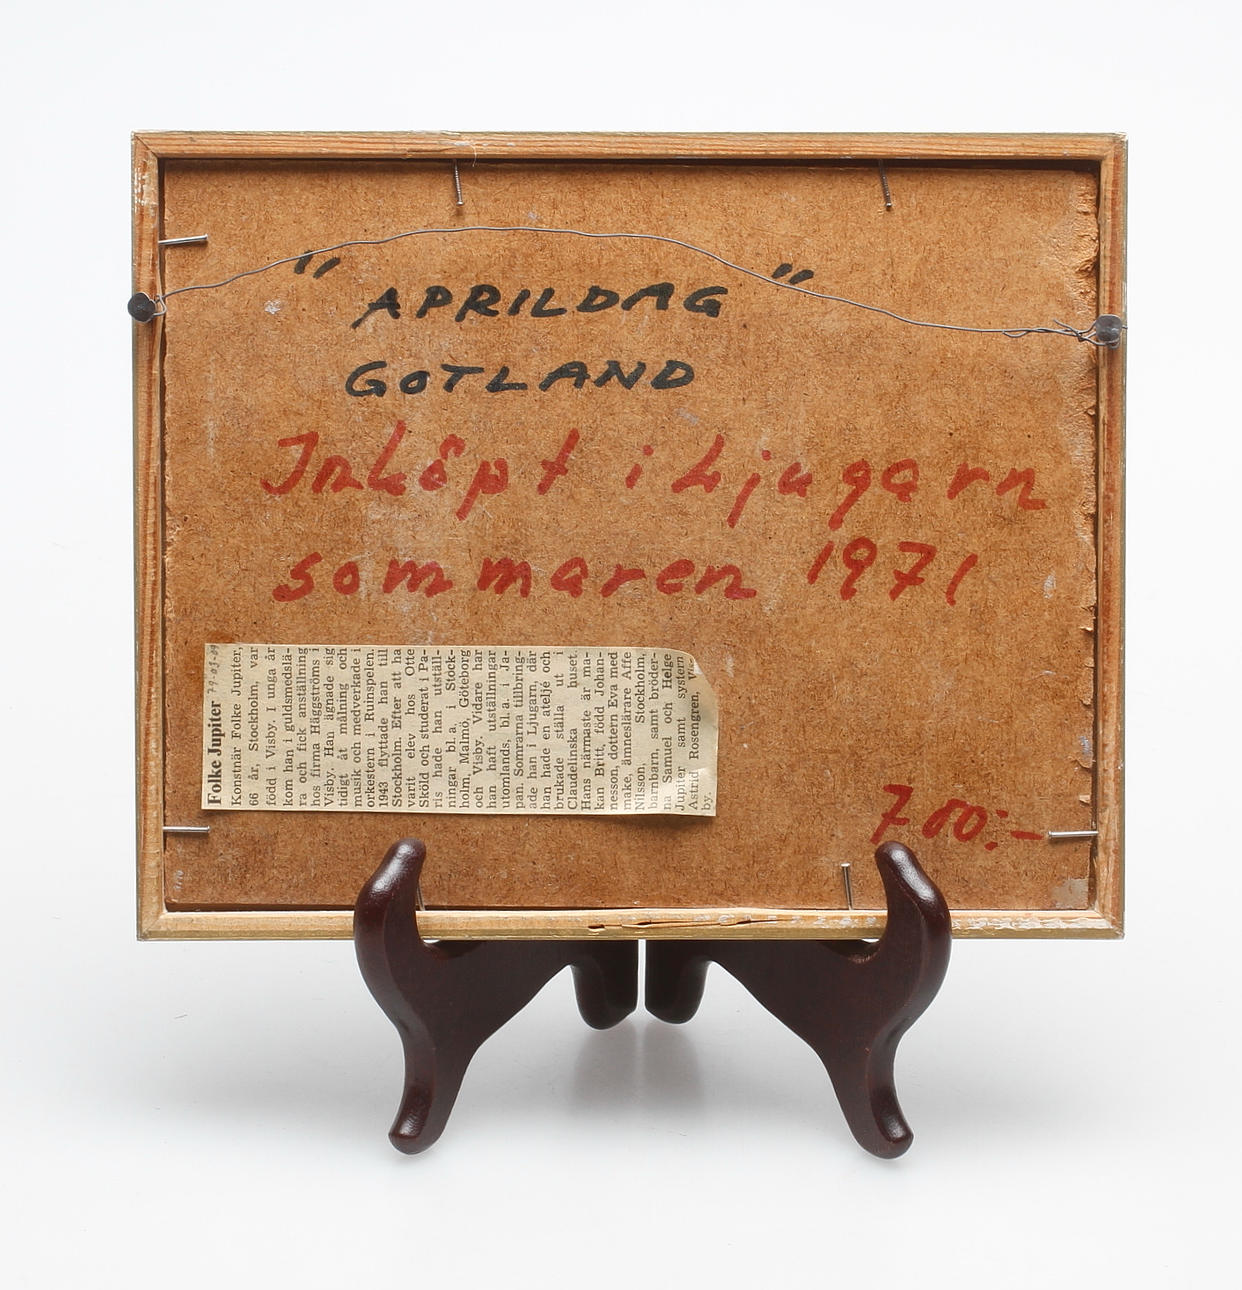 " APRILDAG "
GOTLAND
Inköpt i Ljugarn
sommaren 1971
700:-
Folke Jupiter
Konstnär Folke Jupiter,
66 år, Stockholm, var
född i Visby. I unga år
kom han i guldsmedslä-
ra och fick anställning
hos firma Häggströms i
Visby. Han ägnade sig
tidigt åt målning och
musik och medverkade i
orkestern i Ruinspelen.
1943 flyttade han till
Stockholm. Efter att ha
varit elev hos Otte
Sköld och studerat i Pa-
ris hade han utställ-
ningar bl. a. i Stock-
holm, Malmö, Göteborg
och Visby. Vidare har
han haft utställningar
utomlands, bl. a. i Ja-
pan. Somrarna tillbring-
ade han i Ljugarn, där
han hade en ateljé och
brukade ställa ut i
Claudelinska huset.
Hans närmaste är ma-
kan Britt, född Johan-
nesson, dottern Eva med
make, ämneslärare Affe
Nilsson, Stockholm,
barnbarn, samt bröder-
na Samuel och Helge
Jupiter samt systern
Astrid Rosengren,
by.